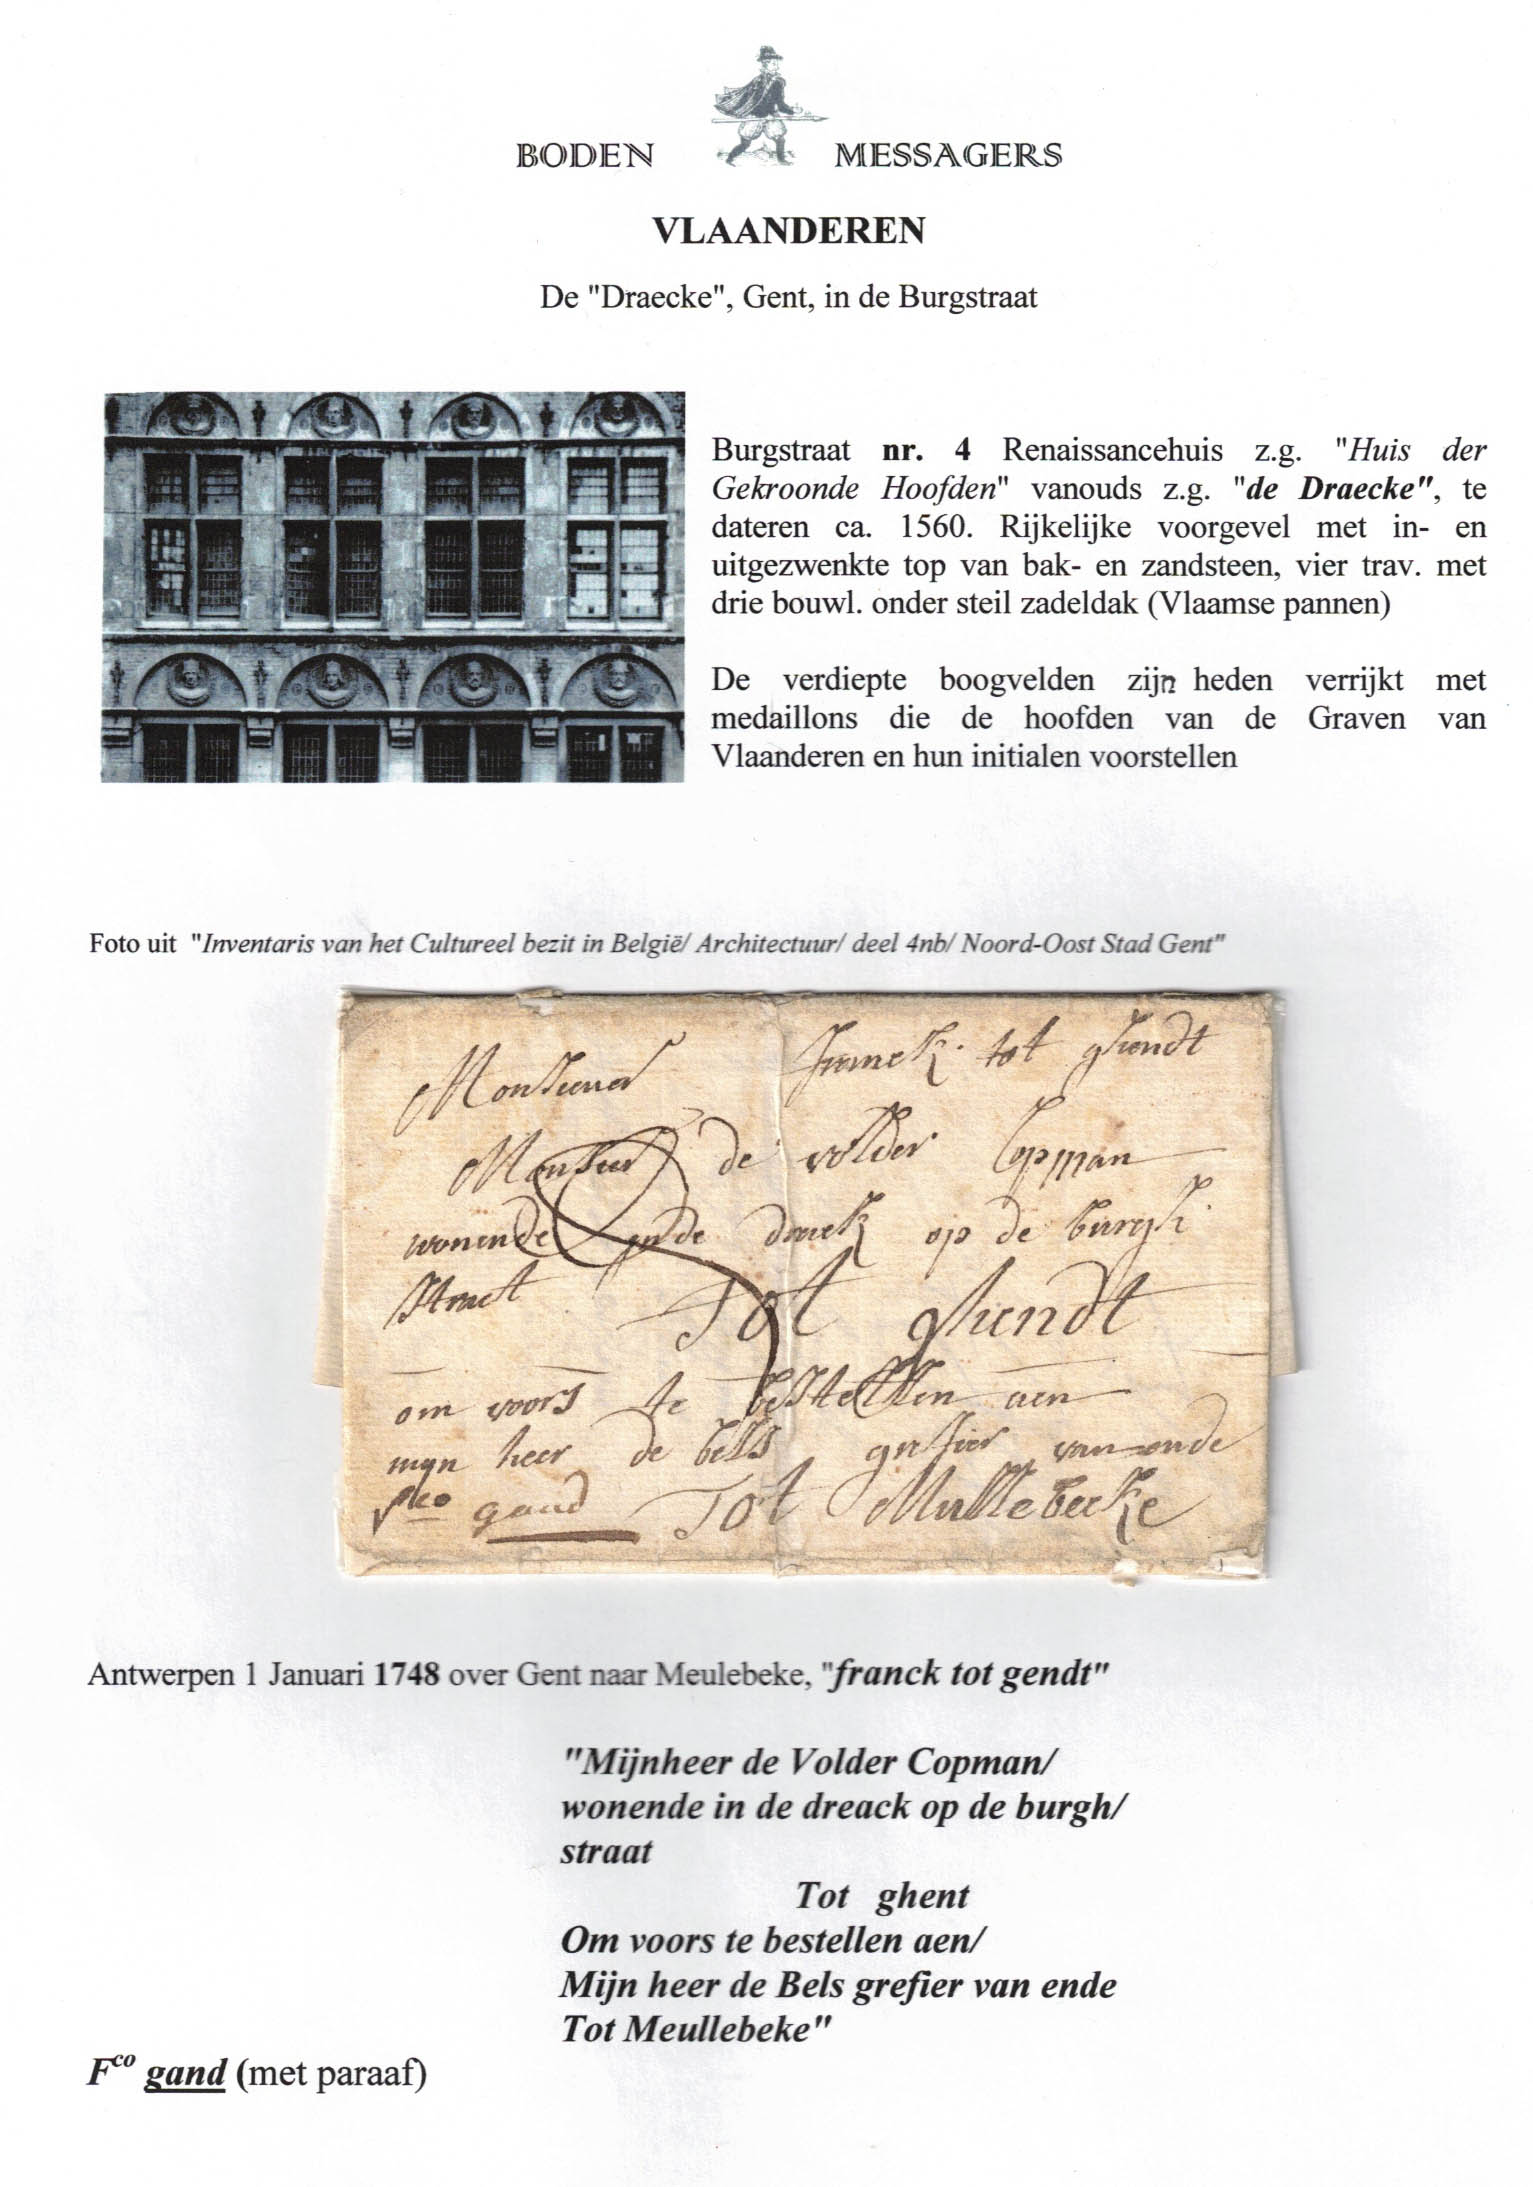 BODEN MESSAGERS
VLAANDEREN
De "Draecke", Gent, in de Burgstraat
Burgstraat nr. 4 Renaissancehuis z.g. "Huis der
Gekroonde Hoofden" vanouds z.g. "de Draecke", te
dateren ca. 1560. Rijkelijke voorgevel met in- en
uitgezwenkte top van bak- en zandsteen, vier trav. met
drie bouwl. onder steil zadeldak (Vlaamse pannen)
De verdiepte boogvelden zijn heden verrijkt met
medaillons die de hoofden van de Graven van
Vlaanderen en hun initialen voorstellen
Foto uit "Inventaris van het Cultureel bezit in België/ Architectuur/ deel 4nb/ Noord-Oost Stad Gent"
Monsieur franck tot ghendt
Monsieur de volder Copman
wonende in de draeck op de burgh
straet Tot Ghendt
om voors te bestellen aen
mijn heer de bels greffier van ende
fco gand Tot Mullebecke
Antwerpen 1 Januari 1748 over Gent naar Meulebeke, "franck tot gendt"
"Mijnheer de Volder Copman/
wonende in de dreack op de burgh/
straat
Tot ghent
Om voors te bestellen aen/
Mijn heer de Bels grefier van ende
Tot Meullebeke"
Fco gand (met paraaf)